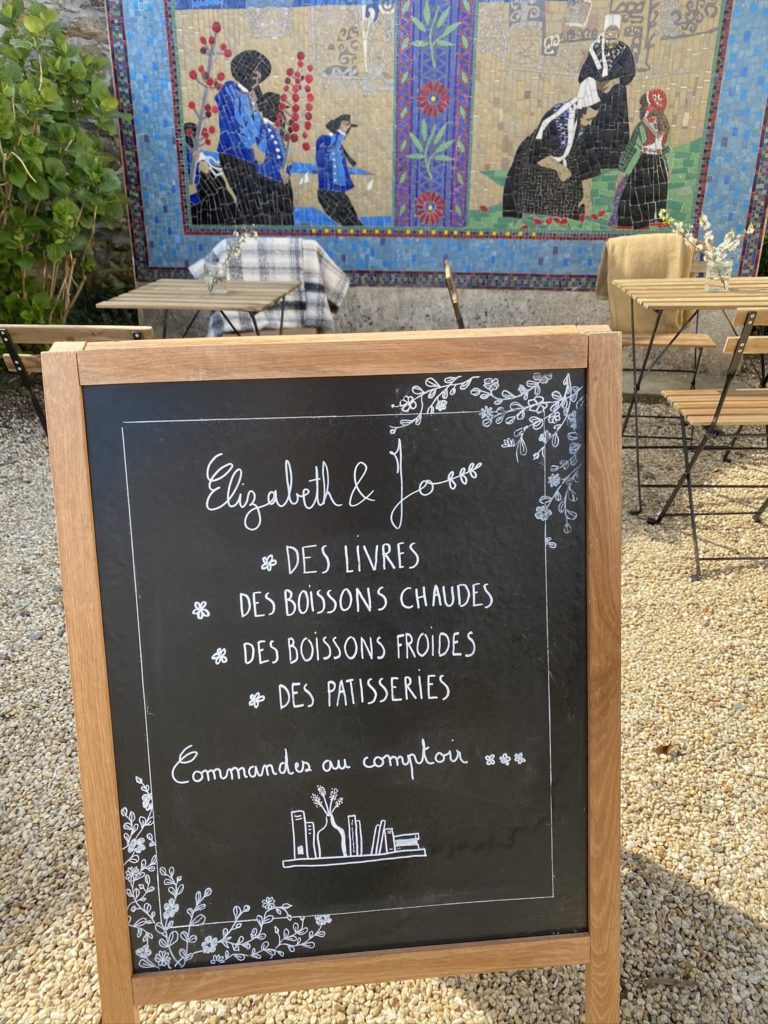 Elizabeth & Jo
DES LIVRES
DES BOISSONS CHAUDES
DES BOISSONS FROIDES
DES PATISSERIES
Commandes au comptoir